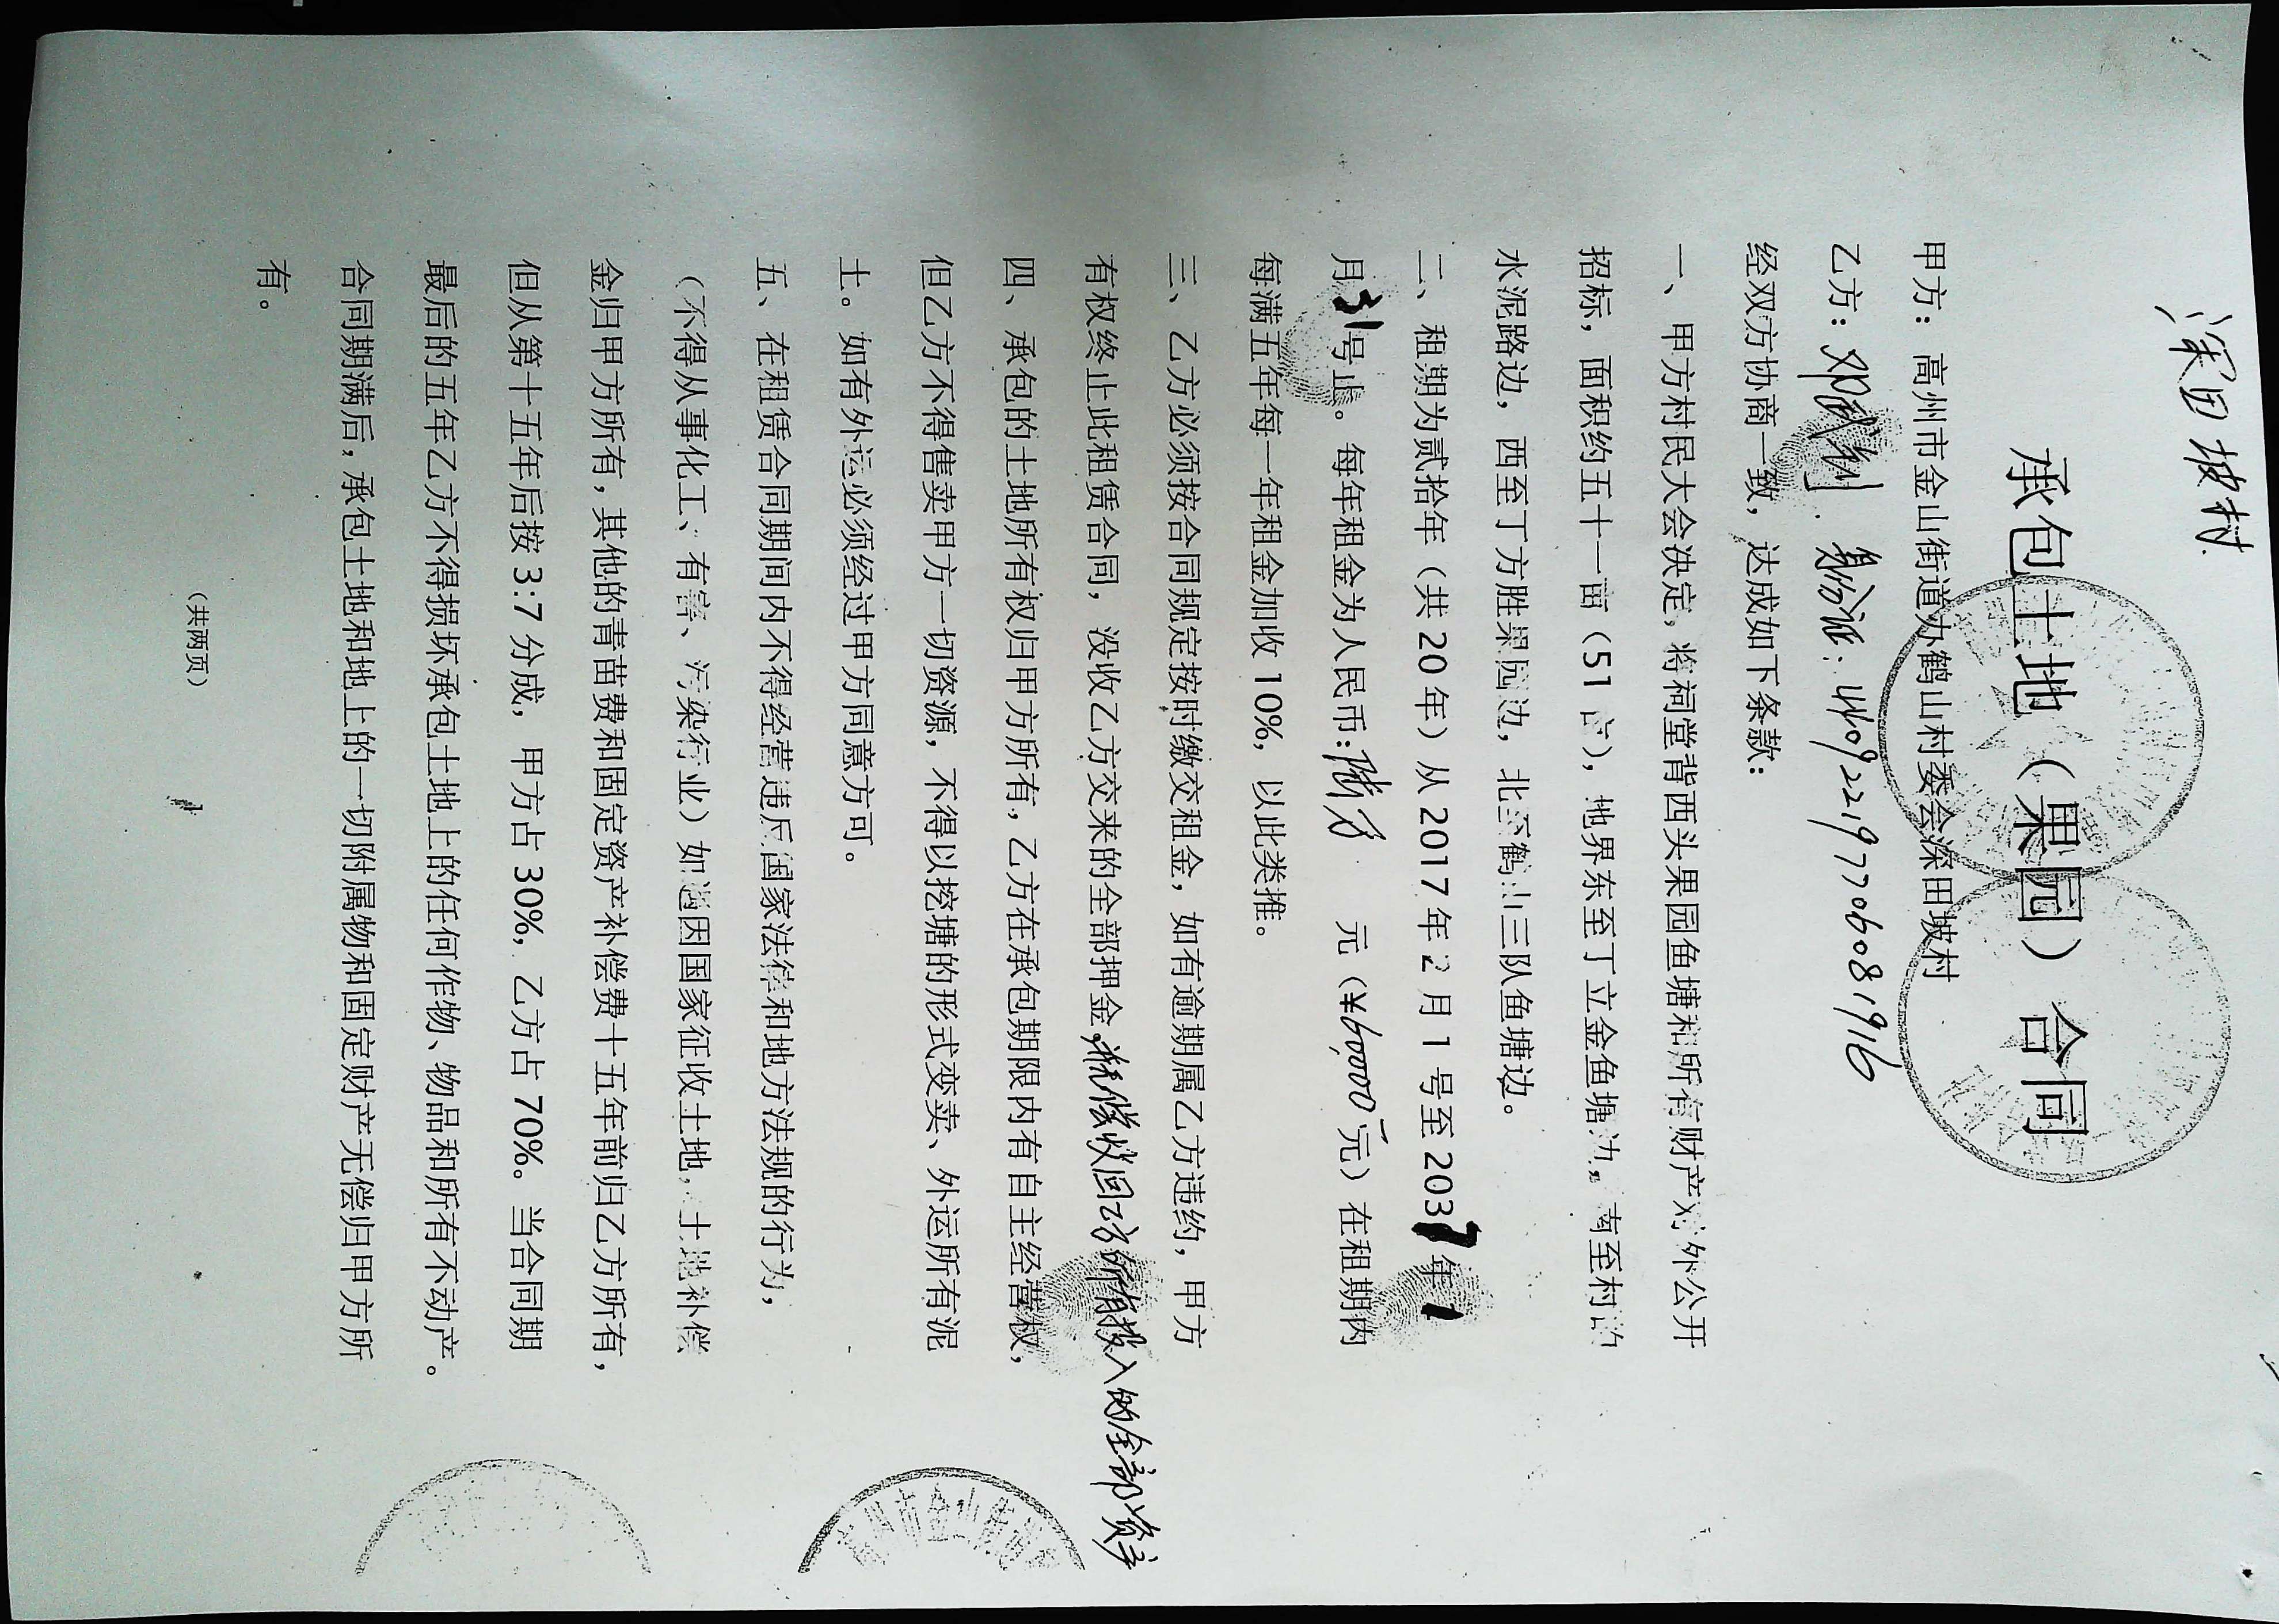 深田坡村
承包土地（果园）合同
甲方：高州市金山街道办鹤山村委会深田坡村
乙方：邓 身份证：440922197706081916
经双方协商一致，达成如下条款：
一、甲方村民大会决定，将祠堂背西头果园鱼塘和所有财产对外公开
招标，面积约五十一亩（51 亩），地界东至丁立金鱼塘边，南至村的
水泥路边，西至丁方胜果园边，北至鹤山三队鱼塘边。
二、租期为贰拾年（共 20 年）从 2017 年 2 月 1 号至 2037 年 1
月 31 号止。每年租金为人民币：陆万 元（¥60000元）在租期内
每满五年每一年租金加收 10%，以此类推。
三、乙方必须按合同规定按时缴交租金，如有逾期属乙方违约，甲方
有权终止此租赁合同，没收乙方交来的全部押金，收回乙方所有投入的全部资产
四、承包的土地所有权归甲方所有，乙方在承包期限内有自主经营权，
但乙方不得售卖甲方一切资源，不得以挖塘的形式变卖、外运所有泥
土。如有外运必须经过甲方同意方可。
五、在租赁合同期间内不得经营违反国家法律和地方法规的行为，
（不得从事化工、有害、污染行业）如遇因国家征收土地，土地补偿
金归甲方所有，其他的青苗费和固定资产补偿费十五年前归乙方所有，
但从第十五年后按 3:7 分成，甲方占 30%，乙方占 70%。当合同期
最后的五年乙方不得损坏承包土地上的任何作物、物品和所有不动产。
合同期满后，承包土地和地上的一切附属物和固定财产无偿归甲方所
有。
（共两页）
1